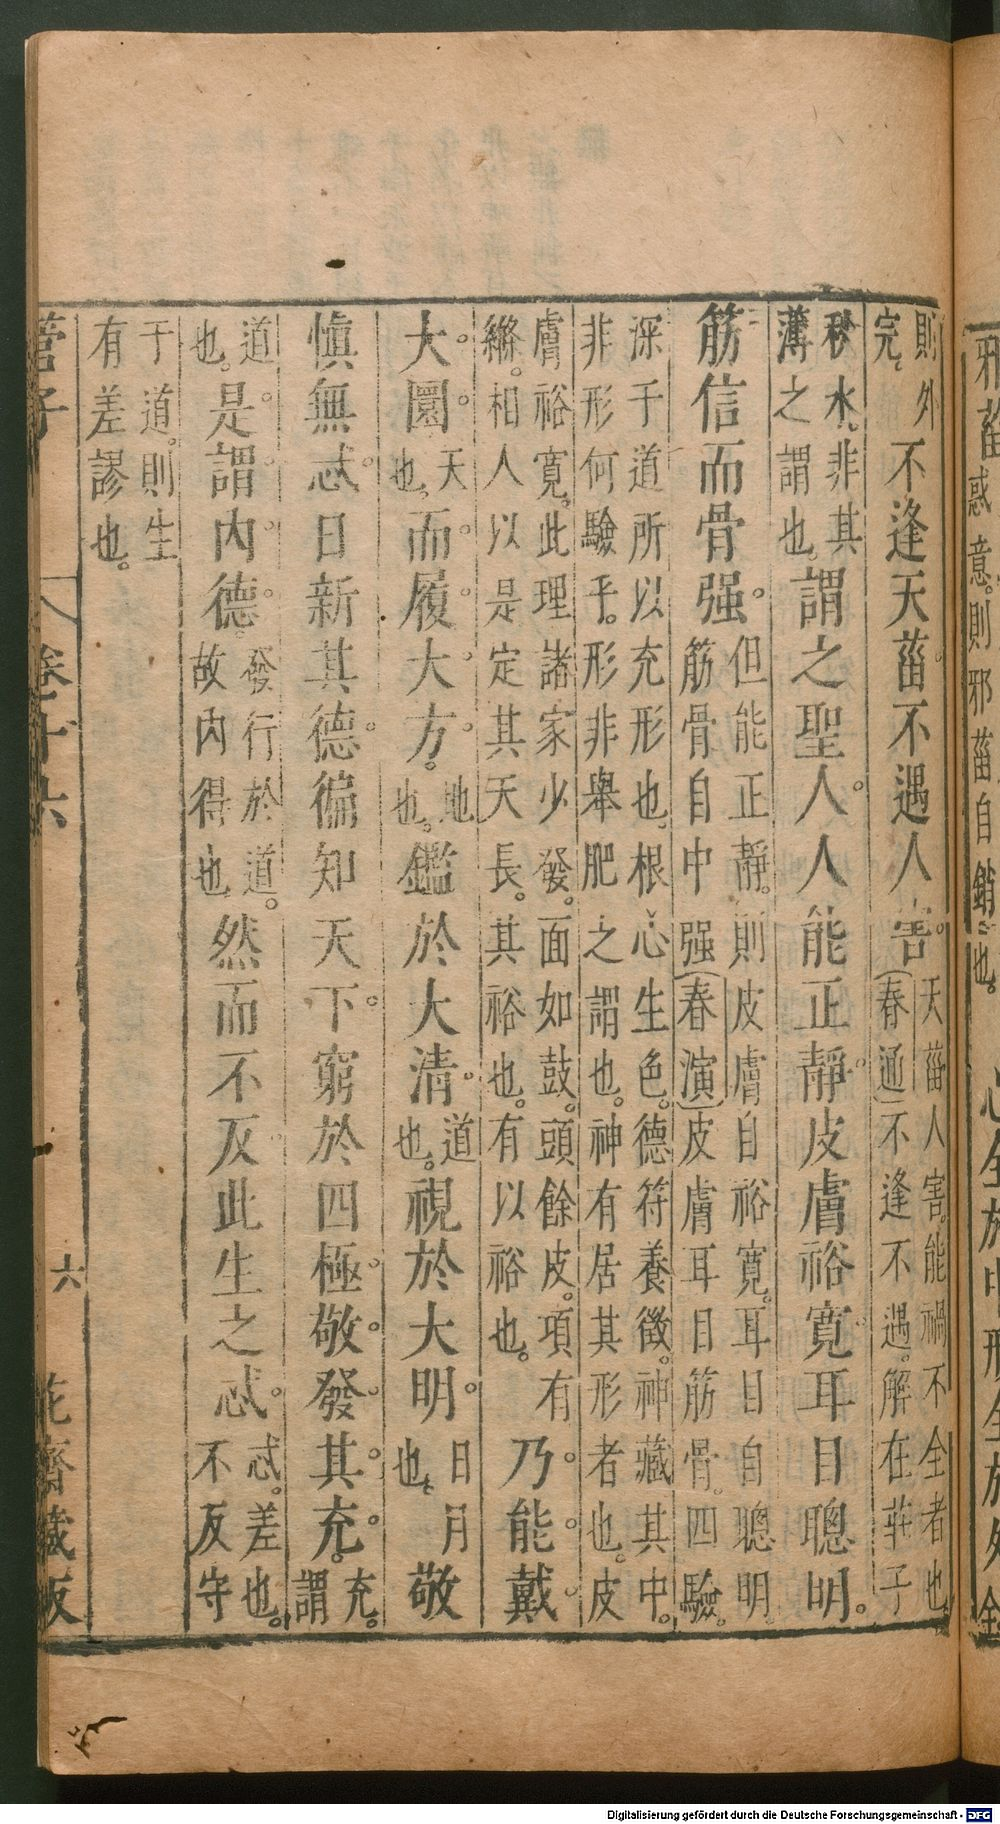 邪菑惑意。則邪菑自銷也。心全於中形全於外
則外完。不逢天菑。不遇人害。天菑人害。能禍不全者也（春通）不逢不遇。解在莊子
秋水。非其薄之謂也。謂之聖人。人能正靜。皮膚裕寬。耳目聰明。
筋信而骨强。但能正靜。則皮膚自裕寬。耳目自聰明。筋骨自中强（春演）皮膚耳目筋骨。四驗。
深于道所以充形也。根心生色。德符養徵。神藏其中。非形何驗乎。形非舉肥之謂也。神有居其形者也。皮
膚裕寬。此理諸家少發。面如鼓。頭餘皮。項有縧。相人以是定其天長。其裕也。有以裕也。乃能戴
大圜。天也。而履大方。地也。鑑於大清。道也。視於大明。日月也。敬
慎無忒。日新其德。徧知天下。窮於四極。敬發其充。充。謂
道也。是謂內德。發行於道。故內得也。然而不反此生之忒。忒。差也。不反守
于道。則生有差謬也。
管子 卷十六 六 花齋藏板
Digitalisierung gefördert durch die Deutsche Forschungsgemeinschaft - DFG